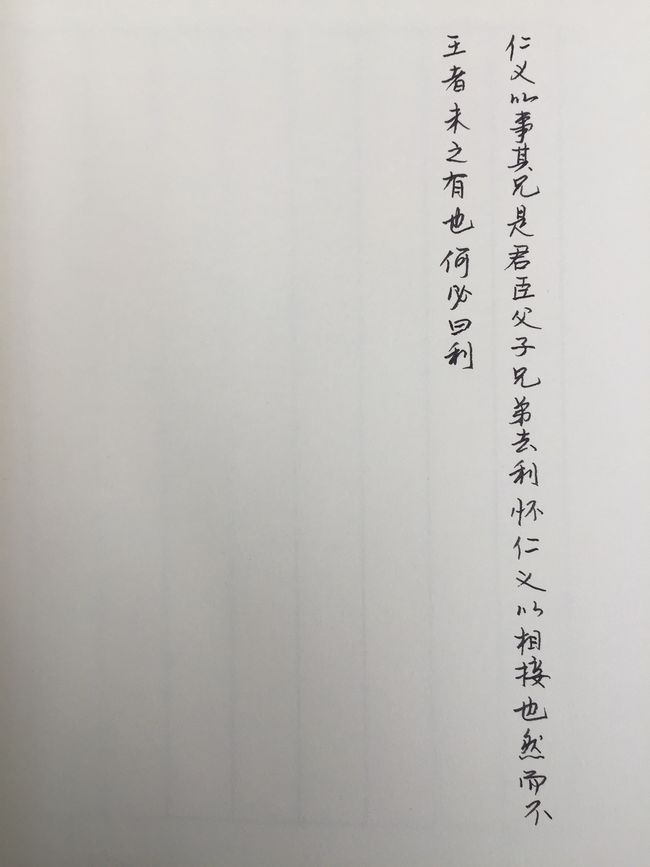 仁义以事其兄是君臣父子兄弟去利怀仁义以相接也然而不
王者未之有也何必曰利